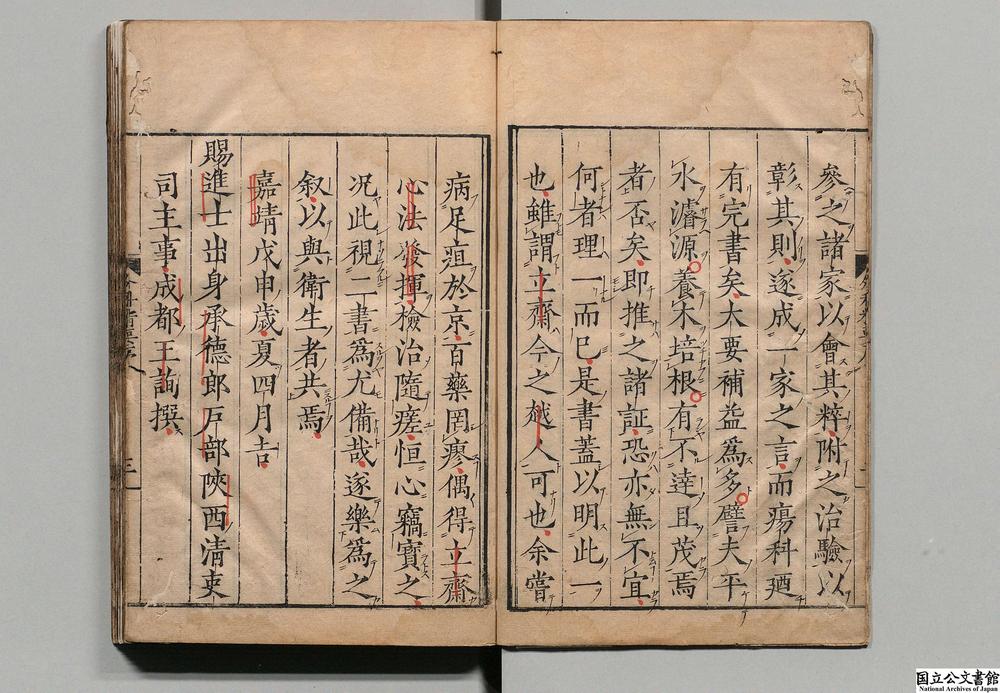 參之諸家以會其粹附之治驗以
彰其則遂成一家之言而瘍科廼
有完書矣大要補益爲多譬夫平
水濬源養木培根有不達且茂焉
者否矣即推之諸証恐亦無不宜
何者理一而已是書蓋以明此一
也雖謂立齋今之越人可也余嘗
病足疽於京百藥罔瘳偶得立齋
心法發揮檢治隨瘥恒心竊寶之
况此視二書爲尤備哉遂樂爲之
叙以與衛生者共焉
嘉靖戊申歲夏四月吉
賜進士出身承德郎戸部陜西清吏
司主事成都王詢撰
三
国立公文書館
National Archives of Japan